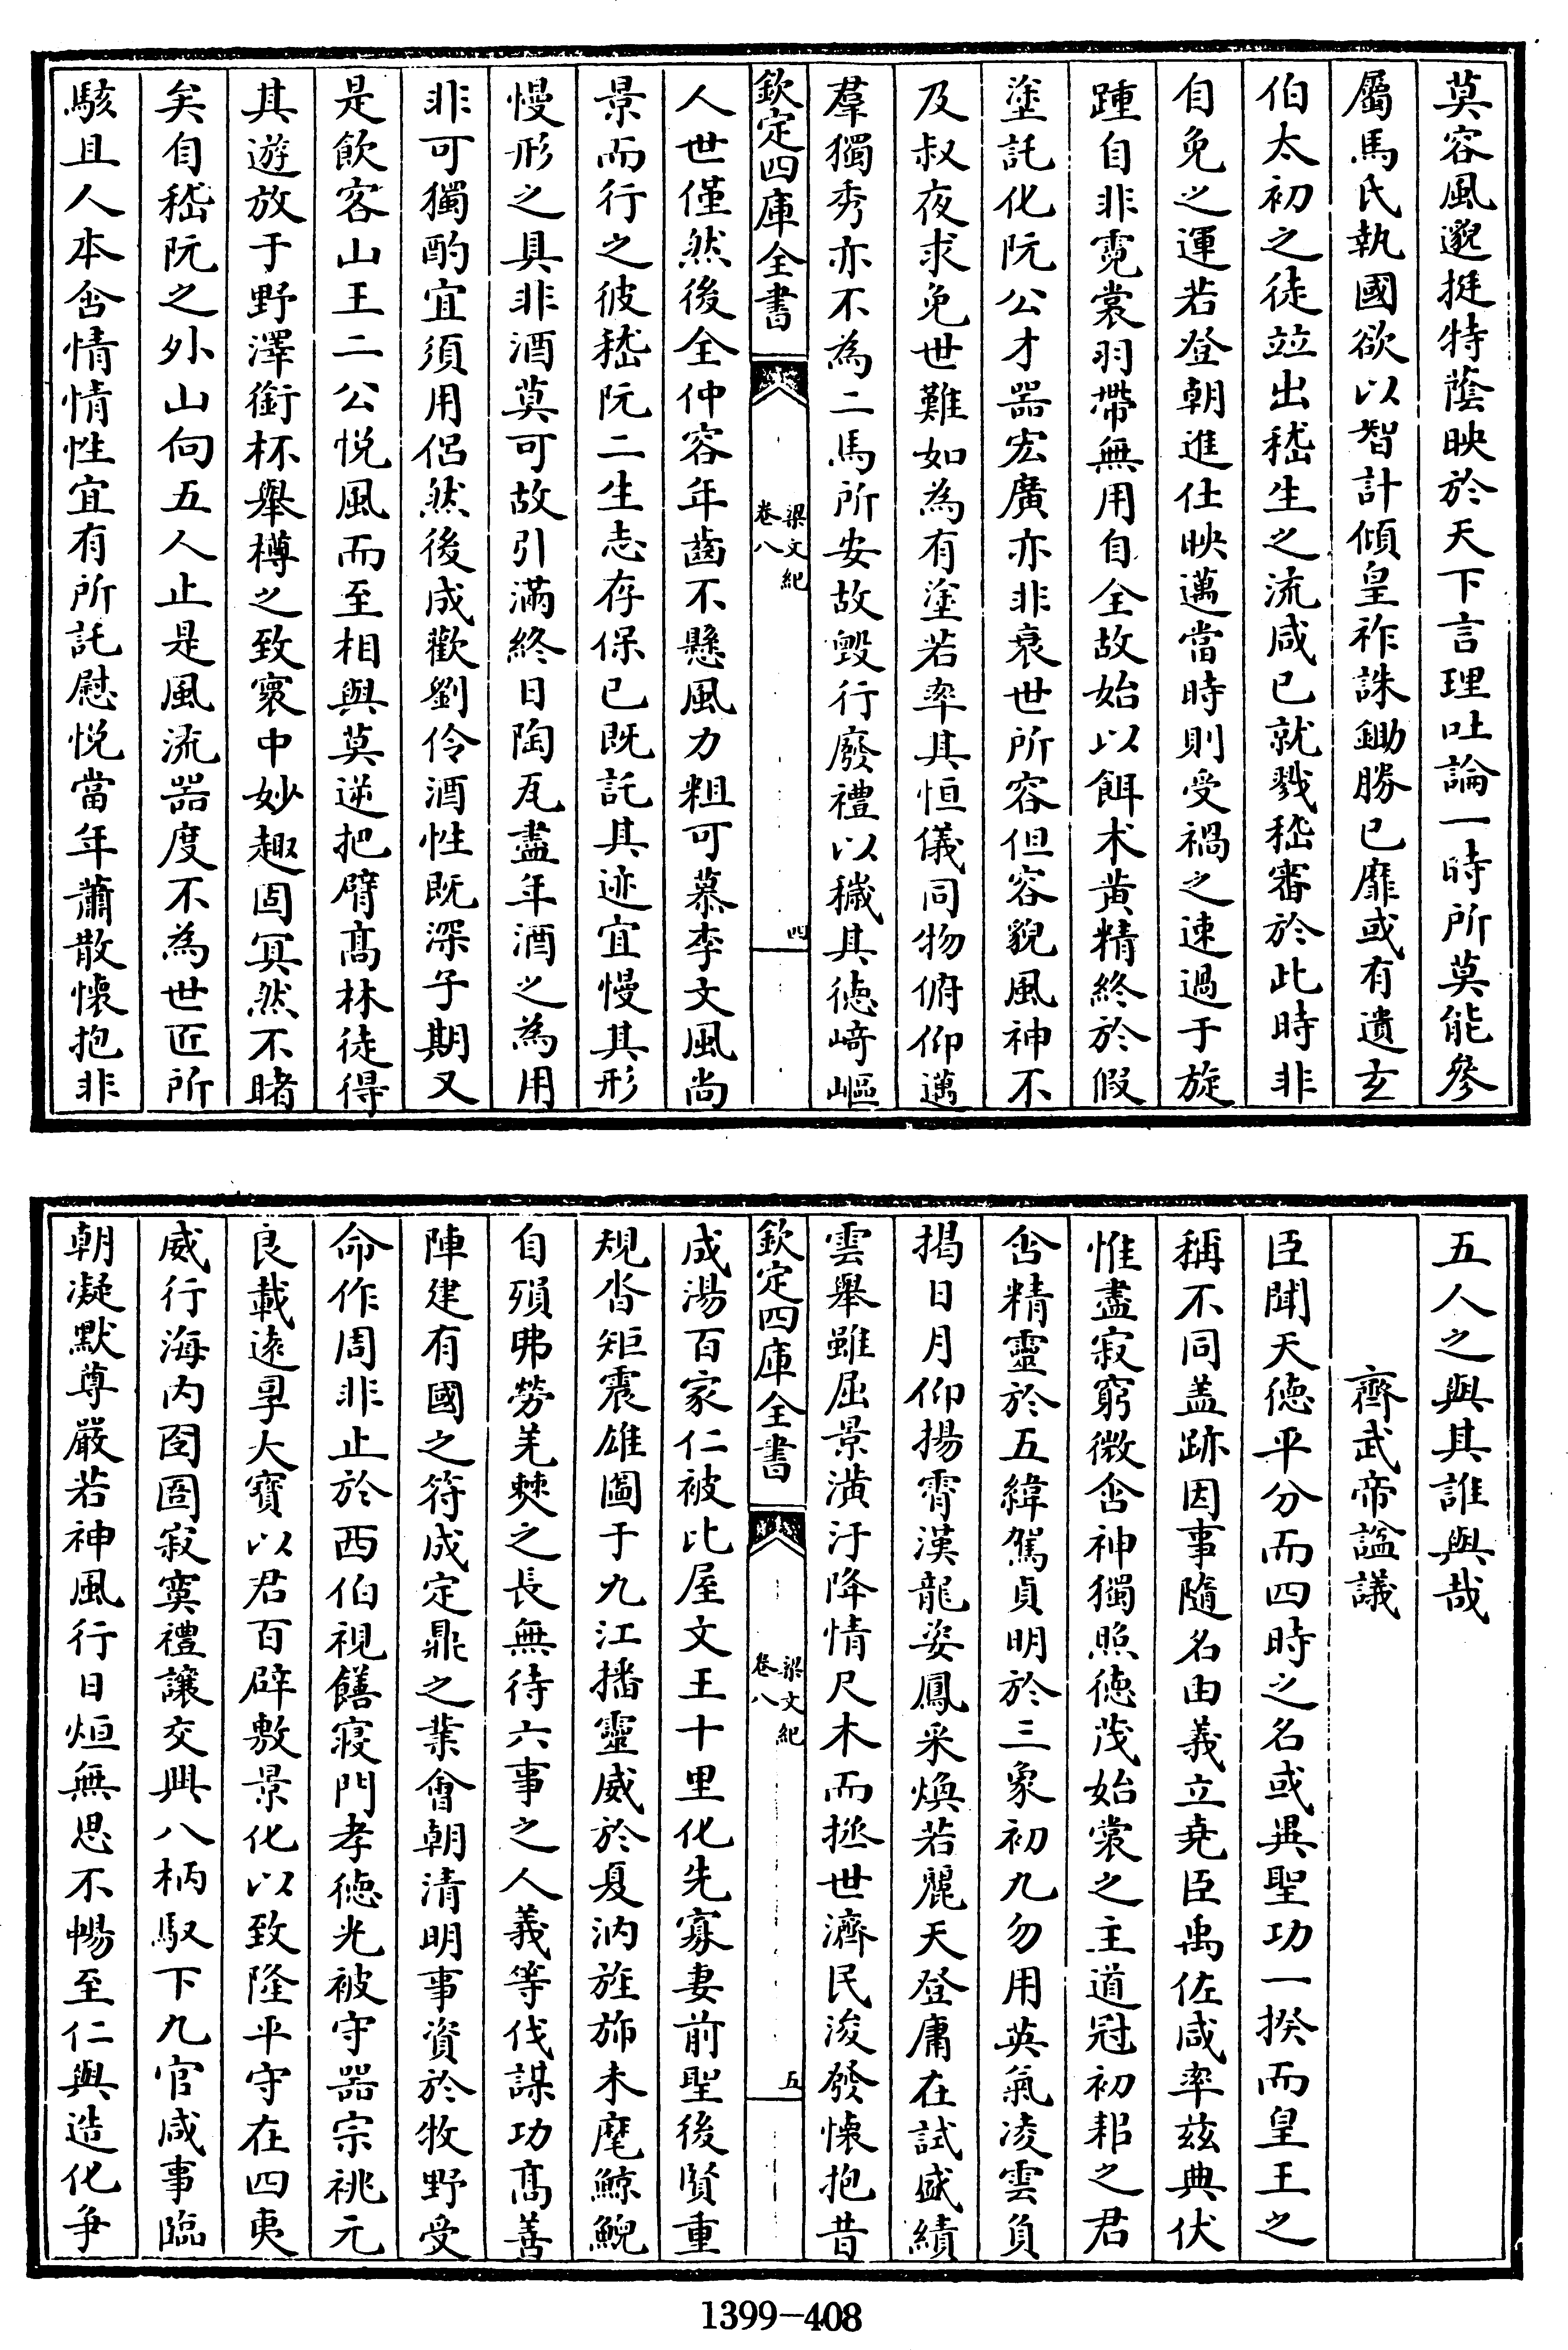 莫容風邈挺特蔭映於天下言理吐論一時所莫能參
屬馬氏執國欲以智計傾皇祚誅鋤勝已靡或有遺玄
伯太初之徒並出嵇生之流咸已就戮嵇審於此時非
自免之運若登朝進仕映邁當時則受禍之速過于旋
踵自非霓裳羽帶無用自全故始以餌术黄精終於假
塗託化阮公才器宏廣亦非衰世所容但容貌風神不
及叔夜求免世難如為有塗若率其恒儀同物俯仰邁
羣獨秀亦不為二馬所安故毁行廢禮以穢其徳﨑嶇
欽定四庫全書
梁文紀
卷八
四
人世僅然後全仲容年齒不懸風力粗可慕李文風尚
景而行之彼嵇阮二生志存保已既託其迹宜慢其形
慢形之具非酒莫可故引滿終日陶瓦盡年酒之為用
非可獨酌宜須用侣然後成歡劉伶酒性既深子期又
是飲客山王二公悦風而至相與莫逆把臂髙林徒得
其遊放于野澤銜杯舉樽之致寰中妙趣固冥然不睹
矣自嵇阮之外山向五人止是風流器度不為世匠所
駭且人本含情情性宜有所託慰悦當年蕭散懷抱非
五人之與其誰與哉
齊武帝諡議
臣聞天徳平分而四時之名或異聖功一揆而皇王之
稱不同盖跡因事隨名由義立堯臣禹佐咸率兹典伏
惟盡寂窮微含神獨照徳茂始裳之主道冠初耜之君
含精靈於五緯駕貞明於三象初九勿用英氣凌雲負
揭日月仰揚霄漢龍姿鳳采煥若麗天登庸在試盛績
雲舉雖屈景潢汙降情尺木而拯世濟民浚發懷抱昔
欽定四庫全書
梁文紀
卷八
五
成湯百家仁被比屋文王十里化先寡妻前聖後賢重
規沓矩震雄圖于九江播靈威於夏汭旌斾未麾鯨鯢
自殞弗勞羌髳之長無待六事之人義等伐謀功髙善
陣建有國之符成定鼎之業㑹朝清明事資於牧野受
命作周非止於西伯視饍寢門孝徳光被守器宗祧元
良載逺孚大寶以君百辟敷景化以致隆平守在四夷
威行海内囹圄寂寞禮讓交興八柄馭下九官咸事臨
朝凝默尊嚴若神風行日烜無思不暢至仁與造化争
1399-408